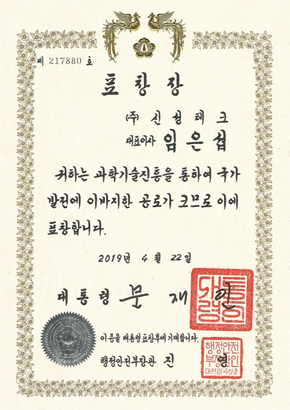 제 217880 호
표 창 장
(주) 신성테크
대표이사 임은섭
귀하는 과학기술진흥을 통하여 국가
발전에 이바지한 공로가 크므로 이에
표창합니다.
2019년 4월 22일
대통령 문재인
이 증을 대통령 표창부에 기재합니다.
행정안전부장관 진 영